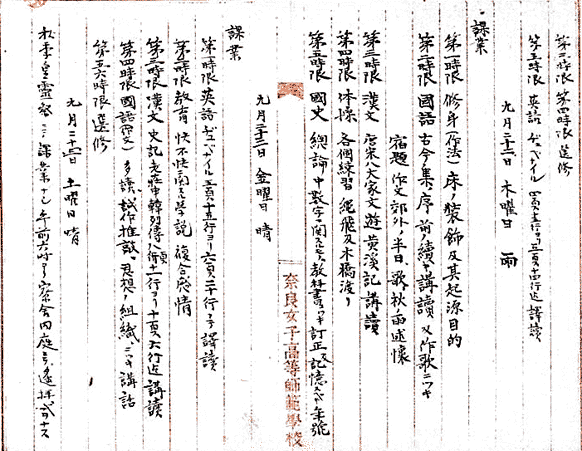 第三時限第四時限選修
第五時限 英語 ヂュベナイル 四頁十七行ヨリ五頁十四行迄譯讀
九月二十二日 木曜日 雨
課業
第一時限 修身(作法) 床ノ裝飾及其起源目的
第二時限 國語 古今集ノ序前續キ講讀 又作歌ニツキ
宿題 作文郊外ノ半日、歌、秋雨述懷
第三時限 漢文 唐宋八大家文 遊黄溪記 講讀
第四時限 体操 各個練習 繩飛及木橋渡リ
第五時限 國史 總論中數字ニ関スル教科書ノ訂正及記憶スベキ年號
九月二十三日 金曜日 晴
課業
第一時限 英語 ヂュベナイル 五頁十五行ヨリ六頁二十行マデ譯讀
第二時限 教育 快不快ニ関スル學説 複合感情
第三時限 漢文 史記 老莊申韓列傳 十一行ヨリ十頁六行迄講讀
第四時限 國語(作文) 多讀、試作推敲、思想ノ組織ニツキ講話
第五六時限 選修
九月二十四日 土曜日 晴
秋季皇靈祭ニテ課業ナシ 午前六時ヨリ寮舎内庭ニテ遙拜式ヲナス
奈良女子高等師範學校